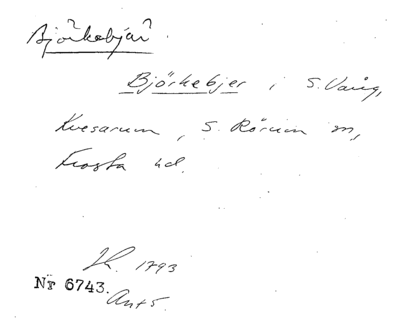 Björkebjär
Björkebjer i S. Vång,
Kvesarum, S. Rörum m,
Frosta hd.
1793
Nr 6743.
Ant 5.